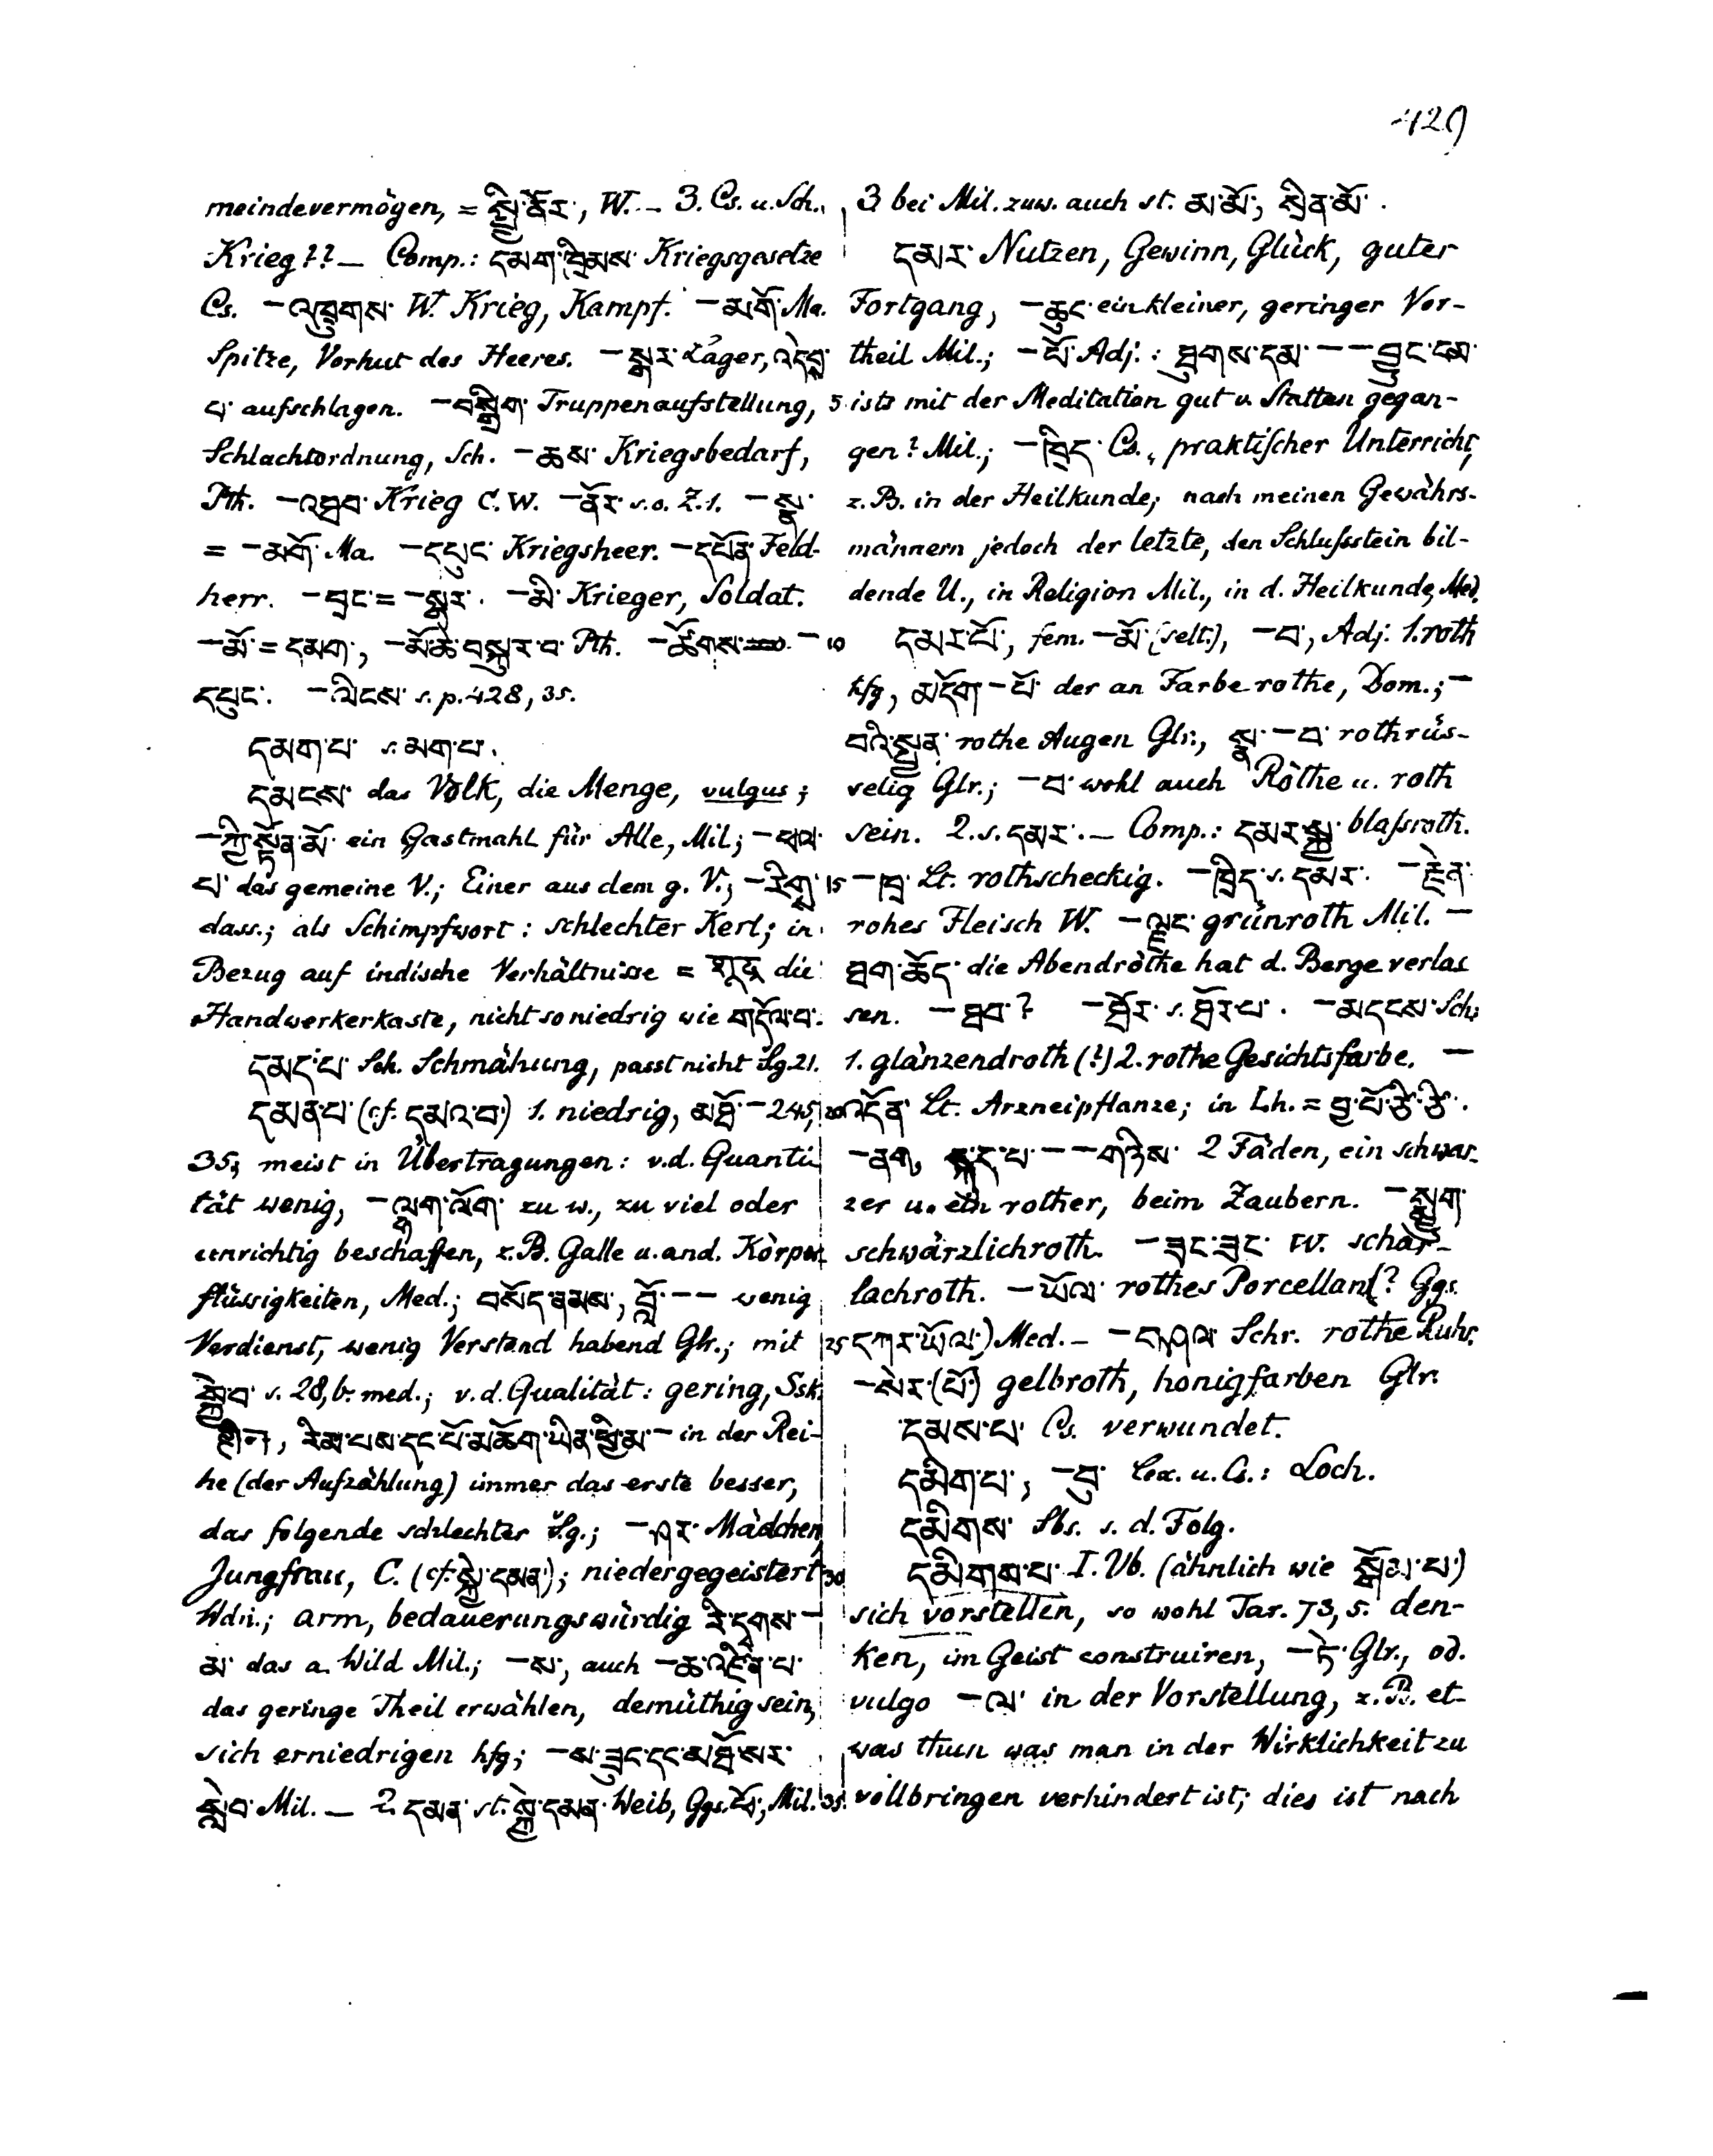 429
meindevermögen, = སྤྱི་ནོར་, W. – 3. Cs. u. Sch.,
Krieg?? – Comp.: དམག་ཁྲིམས་ Kriegsgesetze
Cs. –འཁྲུགས་ W. Krieg, Kampf. –མགོ་ Ma.
Spitze, Vorhut des Heeres. –སྒར་ Lager, འདེབས་
པ་ aufschlagen. –བསྒྲིག་ Truppenaufstellung,
Schlachtordnung, Sch. –ཆས་ Kriegsbedarf,
Pth. –འཐབ་ Krieg C. W. –ནོར་ s.o. Z. 1. –སྣ་
= –མགོ་ Ma. –དཔུང་ Kriegsheer. –དཔོན་ Feld-
herr. –བྲང་ = –སྒར་. –མི་ Krieger, Soldat.
–མོ་ = དམག་, –མོ་ཆེ་བསྐུར་བ་ Pth. –ཚོགས་ –
དཔུང་. –ལིངས་ s. p. 428, 35.
དམག་པ་ s. མག་པ་.
དམངས་ das Volk, die Menge, vulgus;
–ཀྱི་སྟོན་མོ་ ein Gastmahl für Alle, Mil; –ཕལ་
པ་ das gemeine V.; Einer aus dem g. V.; –རིགས་
dass.; als Schimpfwort: schlechter Kerl; in
Bezug auf indische Verhältnisse = शूद्र die
Handwerkerkaste, nicht so niedrig wie གདོལ་པ་.
དམད་པ་ Sch. Schmähung, passt nicht Sg. 21.
དམན་པ་ (cf. དམའ་བ་) 1. niedrig, མཐོ་ – 245,
35; meist in Übertragungen: v. d. Quanti
tät wenig, –ལྷག་ལོག་ zu w., zu viel oder
unrichtig beschaffen, z. B. Galle u. and. Körper
flüssigkeiten, Med.; བསོད་ནམས་, བློ་ – – wenig
Verdienst, wenig Verstand habend Glr.; mit
སྐྱེབ་ s. 28, b. med.; v. d. Qualität: gering, Ssk.
हीन, རིམ་པས་དང་པོ་མཆོག་ཡིན་ཕྱི་མ་ – in der Rei-
he (der Aufzählung) immer das erste besser,
das folgende schlechter Sg.; –ཤར་ Mädchen,
Jungfrau, C. (cf. སྐྱེ་དམན་); niedergegeistert
Wdn.; arm, bedauerungswürdig རི་དྭགས་ –
མ་ das a. Wild Mil.; –ས་, auch –ཆ་འཛིན་པ་
das geringe Theil erwählen, demüthig sein,
sich erniedrigen hfg; –ས་ཟུང་དང་མཐོ་སར་
སླེབ་ Mil. – 2 དམན་ st. སྐྱེ་དམན་ Weib, Ggs. ཕོ་, Mil.
3 bei Mil. zuw. auch st. མ་མོ་, སྲིན་མོ་.
དམར་ Nutzen, Gewinn, Glück, guter
Fortgang, –ཆུང་ ein kleiner, geringer Vor-
theil Mil.; –པོ་ Adj.: ཐུགས་དམ་ – – བྱུང་ངམ་
5 ists mit der Meditation gut v. Statten gegan-
gen? Mil.; –ཁྲིད་ Cs., praktischer Unterricht,
z. B. in der Heilkunde; nach meinen Gewährs-
männern jedoch der letzte, den Schlußstein bil-
dende U., in Religion Mil., in d. Heilkunde, Med.
10 དམར་པོ་, fem. –མོ་ (selt.), –བ་, Adj. 1. roth
hfg, མདོག་ –པོ་ der an Farbe rothe, Dom.; –
བའི་སྤྱན་ rothe Augen Glr., སྣ་ –བ་ rothrüs-
selig Glr.; –བ་ wohl auch Röthe u. roth
sein. 2. s. དམར་. – Comp.: དམར་སྐྱ་ blaßroth.
15 –ཁྲ་ Lt. rothscheckig. –ཁྲིད་ s. དམར་. –རྗེན་
rohes Fleisch W. –ལྗང་ grünroth Mil. –
ཐག་ཆོད་ die Abendröthe hat d. Berge verlas
sen. –ཐབ་? –ཐོར་ s. ཐོར་པ་. –མདངས་ Sch.
1. glänzendroth (?) 2. rothe Gesichtsfarbe. –
20 འདོན་ Lt. Arzneipflanze; in Lh. = བྱ་པོ་ཙི་ཙི་.
–ནག, སྐུད་པ་ – –གཉིས་ 2 Fäden, ein schwar-
zer u. ein rother, beim Zaubern. –སྨུག་
schwärzlichroth. –ཟང་ཟང་ W. schar-
lachroth. –ཡོལ་ rothes Porcellan (? Ggs.
25 དཀར་ཡོལ་) Med. – –བཤལ་ Schr. rothe Ruhr.
–སེར་(པོ་) gelbroth, honigfarben Glr.
དམས་པ་ Cs. verwundet.
དམིག་པ་, –བུ་ Lex. u. Cs.: Loch.
དམིགས་ Sbs. s. d. Folg.
30 དམིགས་པ་ I. Vb. (ähnlich wie སྒོམ་པ་)
sich vorstellen, so wohl Tar. 73, 5. den-
ken, im Geist construiren, –ཏེ་ Glr., od.
vulgo –ལ་ in der Vorstellung, z. B. et-
was thun was man in der Wirklichkeit zu
35. vollbringen verhindert ist; dies ist nach